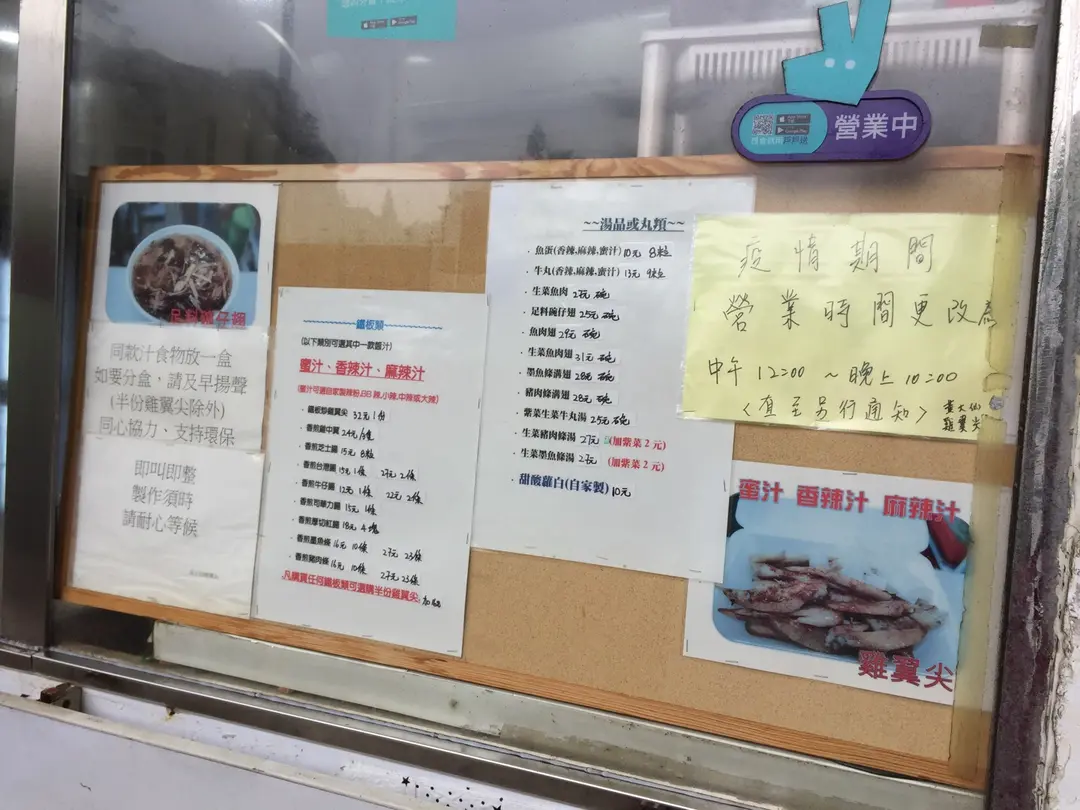 營業中
足料碗仔翅
同款汁食物放一盒
如要分盒，請及早揚聲
(半份雞翼尖除外)
同心協力、支持環保
即叫即整
製作須時
請耐心等候
鐵板類
(以下類別可選其中一款醬汁)
蜜汁、香辣汁、麻辣汁
鐵板雞翼尖 32元 1份
香煎雞中翼
香煎芝士腸 15元 8粒
香煎台灣腸 15元 1條 27元 2條
香煎牛仔腸 12元 1條 22元 2條
香煎司華力腸 15元 1條
香煎厚切紅腸 18元 4塊
香煎墨魚條 16元 10條 27元 23條
香煎豬肉條 16元 10條 27元 23條
凡購買任何鐵板類可選購半份雞翼尖
~~湯品或丸類~~
· 魚蛋(香辣,麻辣,蜜汁) 10元 8粒
· 牛丸(香辣,麻辣,蜜汁) 13元 9粒
· 生菜魚肉 27元 碗
· 足料碗仔翅 25元 碗
· 魚肉翅 29元 碗
· 生菜魚肉翅 31元 碗
· 墨魚條溝翅 28元 碗
· 豬肉條溝翅 28元 碗
· 紫菜生菜牛丸湯 25元 碗
· 生菜豬肉條湯 27元 (加紫菜 2 元)
· 生菜墨魚條湯 27元 (加紫菜 2 元)
· 甜酸蘿白(自家製) 10元
疫情期間
營業時間更改為
中午 12:00 ~ 晚上 10:00
<直至另行通知>
黃大仙
雞翼尖
蜜汁 香辣汁 麻辣汁
雞翼尖